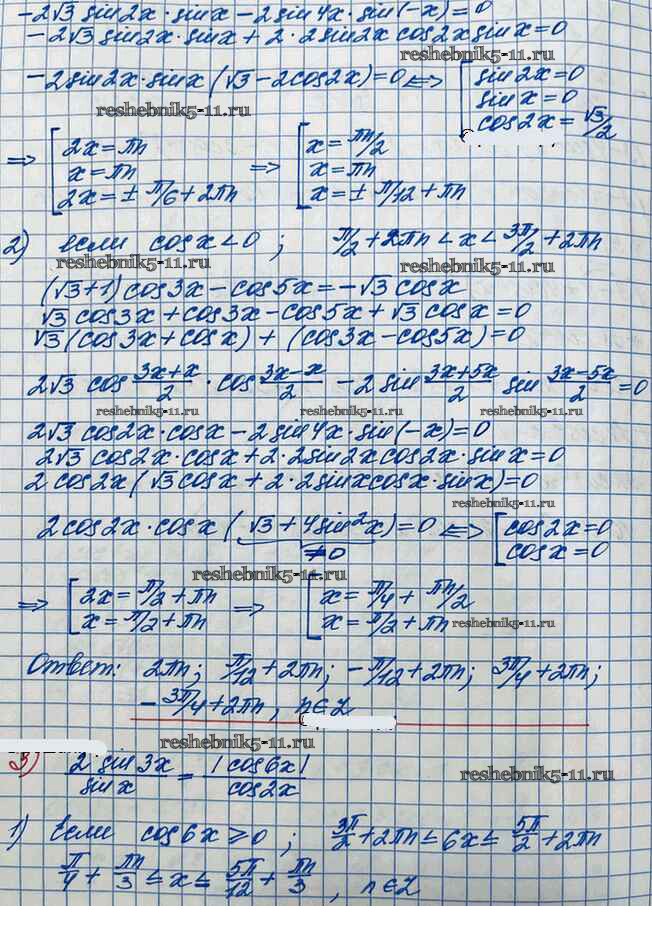 -2√3 sin2x·sinx - 2sin4x·sin(-x)=0
-2√3 sin2x·sinx + 2·2sin2x cos2x sinx=0
reshebnik5-11.ru
-2sin2x·sinx(√3-2cos2x)=0 ⟺ [ sin2x=0
sinx=0
cos2x=√3/2
reshebnik5-11.ru
⇒ [ 2x=πn
x=πn
2x=±π/6+2πn
⇒ [ x=πn/2
x=πn
x=±π/12+πn
2) если cosx<0; π/2+2πn<x<3π/2+2πn
reshebnik5-11.ru reshebnik5-11.ru
(√3+1)cos3x-cos5x=-√3cosx
√3cos3x+cos3x-cos5x+√3cosx=0
√3(cos3x+cosx)+(cos3x-cos5x)=0
2√3 cos (3x+x)/2 · cos (3x-x)/2 - 2 sin (3x+5x)/2 sin (3x-5x)/2 =0
reshebnik5-11.ru reshebnik5-11.ru reshebnik5-11.ru
2√3 cos2x·cosx-2sin4x·sin(-x)=0
2√3 cos2x·cosx+2·2sin2xcos2x·sinx=0
2cos2x(√3cosx+2·2sinxcosx·sinx)=0
reshebnik5-11.ru
2cos2x·cosx(√3+4sin²x)=0 ⟺ [ cos2x=0
cosx=0
≠0
reshebnik5-11.ru
⇒ [ 2x=π/2+πn
x=π/2+πn
⇒ [ x=π/4+πn/2
x=π/2+πn
reshebnik5-11.ru
Ответ: 2πn; π/12+2πn; -π/12+2πn; 3π/4+2πn;
-3π/4+2πn, n∈Z
reshebnik5-11.ru
3) 2·sin3x/sinx = |cos6x|/cos2x
reshebnik5-11.ru
1) Если cos6x≥0; 3π/2+2πn≤6x≤5π/2+2πn
π/4+πn/3≤x≤5π/12+πn/3, n∈Z